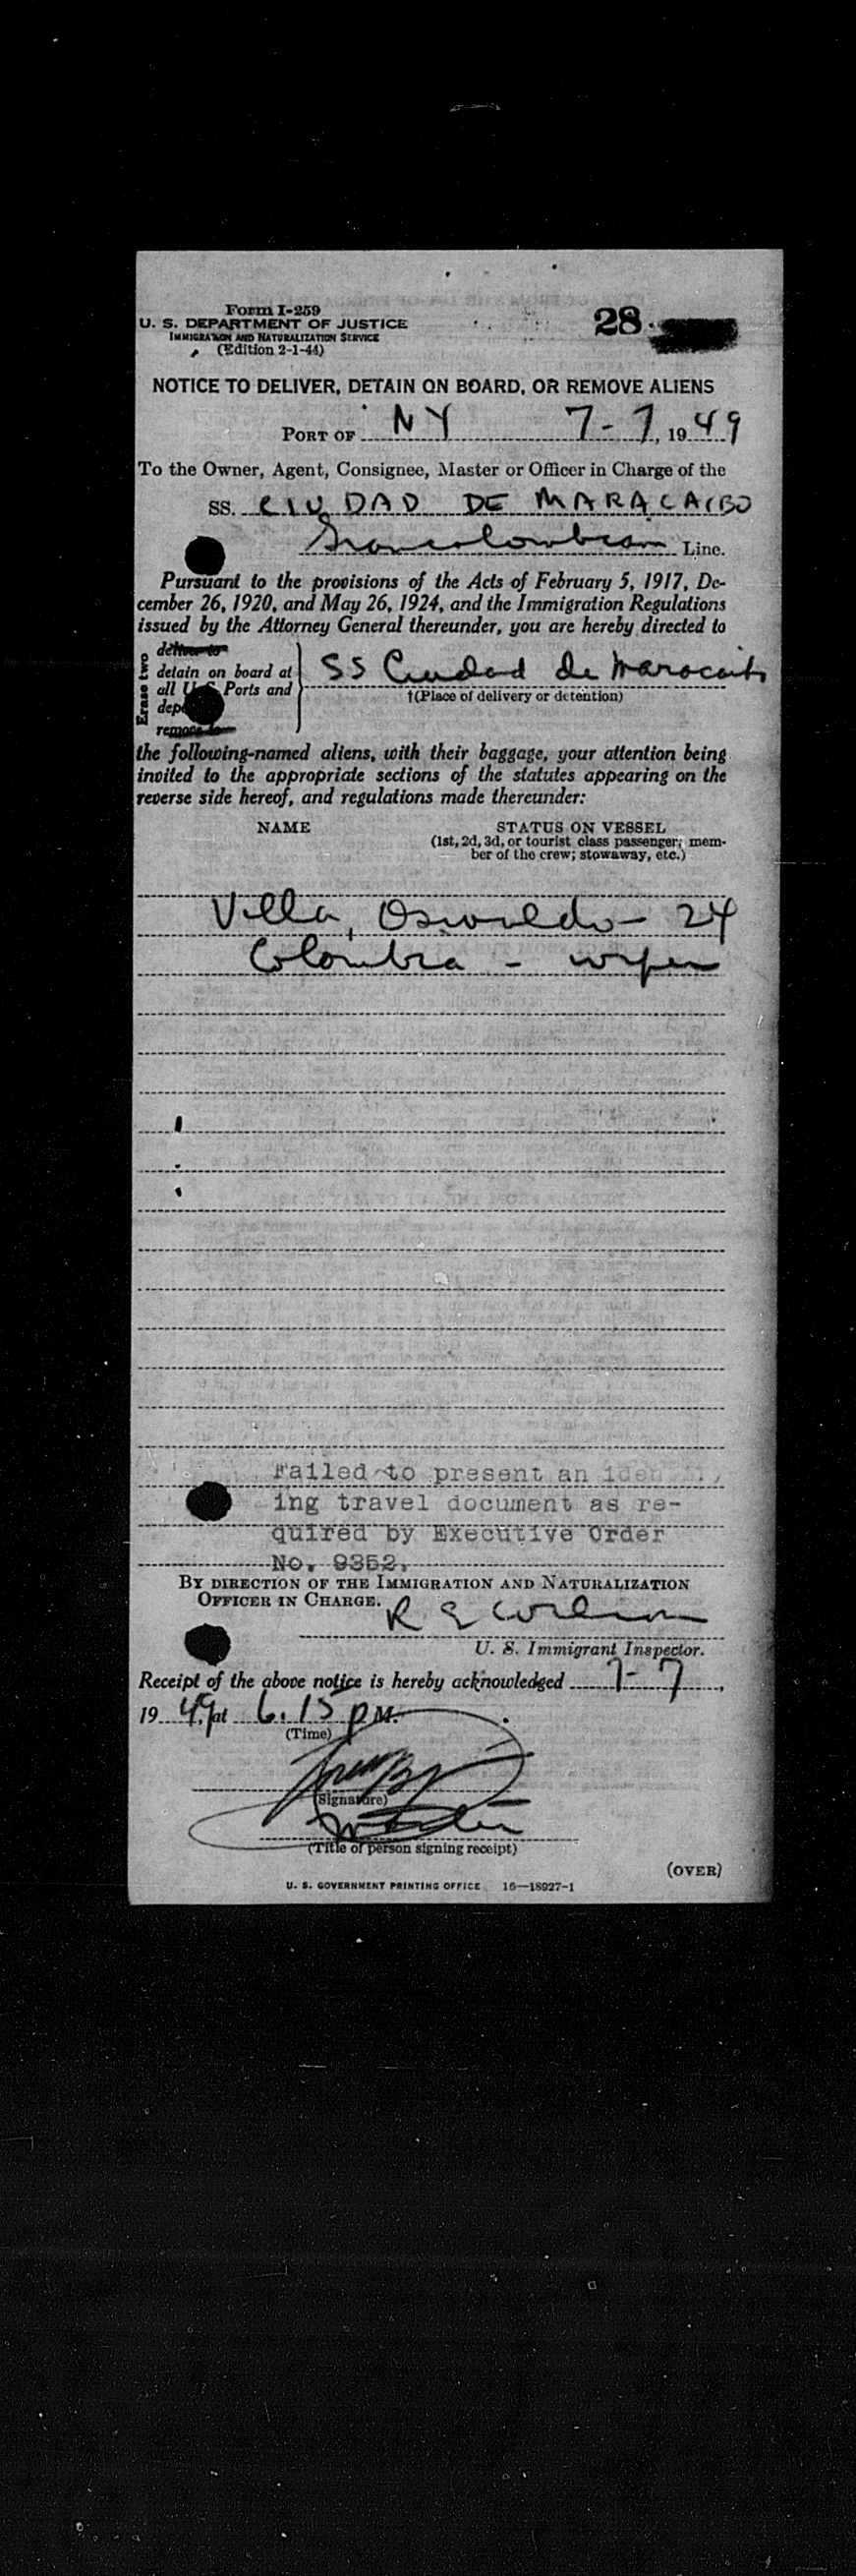 Form I-259
U. S. DEPARTMENT OF JUSTICE
IMMIGRATION AND NATURALIZATION SERVICE
(Edition 2-1-44)
28
NOTICE TO DELIVER, DETAIN ON BOARD, OR REMOVE ALIENS
PORT OF NY 7-7, 1949
To the Owner, Agent, Consignee, Master or Officer in Charge of the
SS. CIUDAD DE MARACAIBO
Grancolombian Line.
Pursuant to the provisions of the Acts of February 5, 1917, De-
cember 26, 1920, and May 26, 1924, and the Immigration Regulations
issued by the Attorney General thereunder, you are hereby directed to
Erase two
deliver to
detain on board at
all U.S. Ports and
dep
remove to
SS Ciudad de Maracaibo
†(Place of delivery or detention)
the following-named aliens, with their baggage, your attention being
invited to the appropriate sections of the statutes appearing on the
reverse side hereof, and regulations made thereunder:
NAME STATUS ON VESSEL
(1st, 2d, 3d, or tourist class passenger; mem-
ber of the crew; stowaway, etc.)
Villa, Oswaldo - 24
Colombia - wiper
Failed to present an iden
ing travel document as re-
quired by Executive Order
No. 9352.
BY DIRECTION OF THE IMMIGRATION AND NATURALIZATION
OFFICER IN CHARGE.
R E
U. S. Immigrant Inspector.
Receipt of the above notice is hereby acknowledged 7-7,
1949, at 6.15 P M.
(Time)
(Signature)
(Title of person signing receipt)
(OVER)
U. S. GOVERNMENT PRINTING OFFICE 16—18027-1